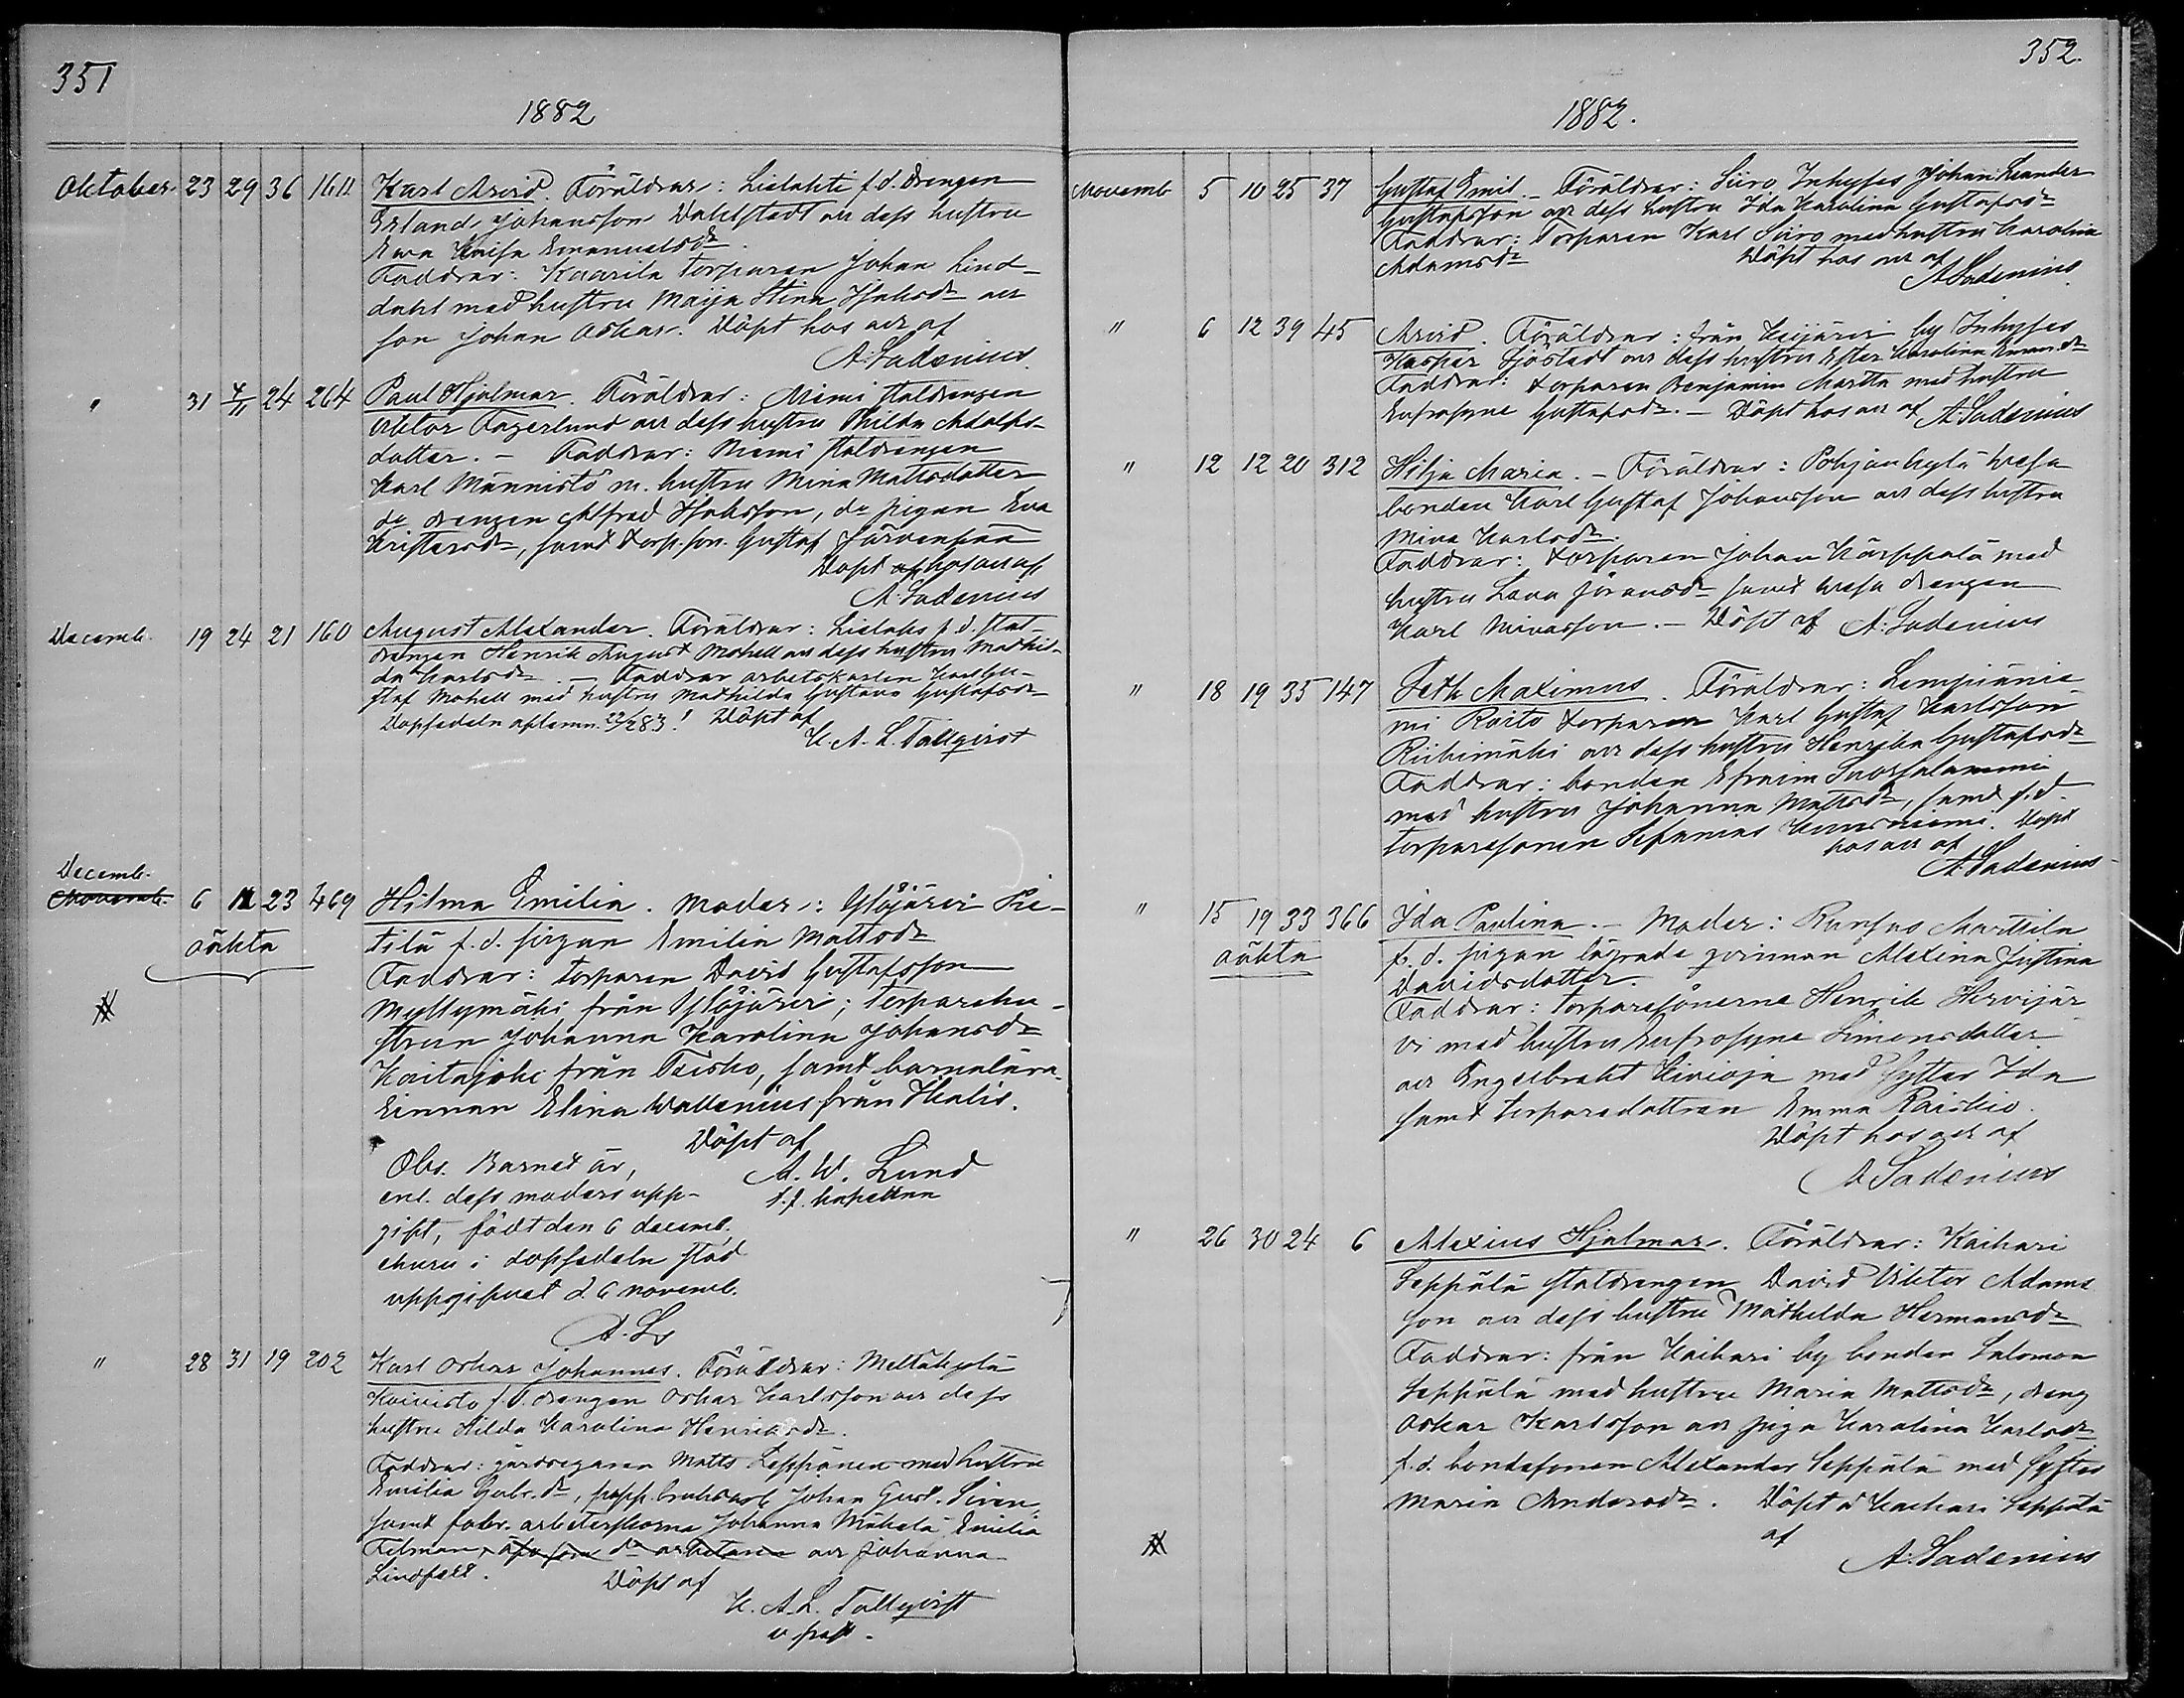 351
1882
Oktober. 23 29 36 1611 Karl Arvid. Föräldrar: Lielahti f.d. drengen
Erland Johansson Dahlstedt och dess hustru
Ewa Kaisa Emanuelsdr.
Faddrar: Kaarila torparen Johan Lind-
dahl med hustru Maija Stina Jfaksdr och
son Johan Oskar. Döpt hos oss af
A. Sadenius.
" 31 4/11 24 264 Paul Hjalmar. Föräldrar: Niemi staldrengen
Viktor Fagerlund och dess hustru Hilda Adolfs-
dotter. – Faddrar: Niemi staldrengen
Karl Männistö m. hustru Mina Mattsdotter
do drengen Alfred Jfaksson, do pigan Eva
Kristersdr, samt torp.son. Gustaf Järvenpää
Döpt af hos oss af
A. Sadenius
Decemb. 19 24 21 160 August Alexander. Föräldrar: Lielaks f.d. stal-
drengen Henrik August Mohell och dess hustru Mathil-
da Karlsdr. – Faddrar arbetskarlen Karl Gu-
staf Mohell med hustru Mathilda Gustava Gustafsdr
Dopsedeln aflemn. 22/2 83! Döpt af
K. A. L. Tallqvist
Decemb.
Novemb. 6 11 23 469 Hilma Emilia. Moder: Ylöjärvi Pie-
oäkta
tilä f.d. pigan Emilia Mattsdr
Faddrar: torparen David Gustafsson
Myllymäki från Ylöjärvi; torparehu-
strun Johanna Karolina Johansdr
Kaitajoki från Teisko, samt barnalära-
rinnan Elina Wallenius från Ikalis.
Döpt af
A. W. Lund
t.f. kapellan
Obs. Barnet är,
enl. dess moders upp-
gift, födt den 6 decemb.
ehuru i dopsedeln stod
uppgifvet d. 6 novemb.
A. Ls
" 28 31 19 202 Karl Oskar Johannes. Föräldrar: Messukylä
Koivisto f.d. drengen Oskar Karlsson och dess
hustru Hilda Karolina Henriksdr.
Faddrar: gårdsegaren Matts Leppänen med hustru
Emilia Gabr.dr, papp.bruksarb. Johan Gust. Siren,
samt fabr. arbeterskorna Johanna Mäkelä Emilia
Felman, äfvensom do arbetaren och Johanna
Lindfelt. Döpt af
K. A. L. Tallqvist
v. past.
352.
1882.
Novemb 5 10 25 37 Gustaf Emil. – Föräldrar: Siiro Inhyses Johan Leander
Gustafsson och dess hustru Ida Karolina Gustafsdr
Faddrar: Torparen Karl Siiro med hustru Karolina
Adamsdr Döpt hos oss af
A. Sadenius.
" 6 12 39 45 Arvid. Föräldrar: från Keijärvi by Inhyses
Kaspar Sjöstedt och dess hustru Ester Karolina Emansdr
Faddrar: torparen Benjamin Martta med hustru
Eufrosyne Gustafsdr. – Döpt hos oss af A. Sadenius
" 12 12 20 312 Hilja Maria. – Föräldrar: Pohjankylä Wesa
bonden Karl Gustaf Johansson och dess hustru
Mina Karlsdr.
Faddrar: torparen Johan Kärppälä med
hustru Lena Göransdr samt Wesa drengen
Karl Minasson. – Döpt af A. Sadenius
" 18 19 35 147 Seth Maximus. Föräldrar: Lempiänie-
mi Raito torparen Karl Gustaf Karlsson
Riihimäki och dess hustru Henrika Gustafsdr
Faddrar: bonden Efraim Suorsalammi
med hustru Johanna Mattsdr, samt f.d.
torparesonen Sefanias Kuusniemi. Döpt
hos oss af
A. Sadenius
" 15 19 33 366 Ida Paulina. – Moder: Runsas Marttila
oäkta
f. d. pigan lägrade qvinnan Alexina Justina
Davidsdotter.
Faddrar: torparesönerne Henrik Hirvijär-
vi med hustru Eufrosyne Simonsdotter
och Engelbrekt Kivioja med syster Ida
samt torparedottren Emma Raiskio.
Döpt hos oss af
A Sadenius
" 26 30 24 6 Alexius Hjalmar. Föräldrar: Kaihari
Seppälä staldrengen David Viktor Adams
son och dess hustru Mathilda Hermansdr
Faddrar: från Kaihari by bonden Salomon
Seppälä med hustru Maria Mattsdr, dreng
Oskar Karlsson och piga Karolina Karlsdr
f.d. bondesonen Alexander Seppälä med syster
Maria Andersdr. Döpt i Kaihari Seppälä
af
A. Sadenius